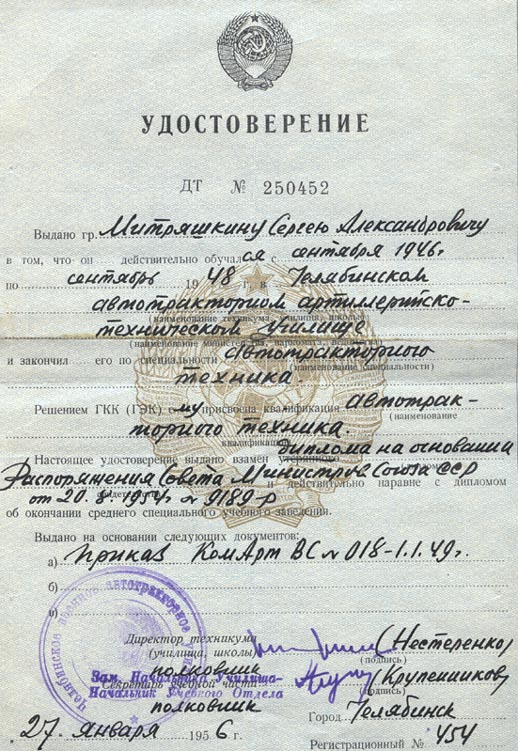 УДОСТОВЕРЕНИЕ
ДТ № 250452
Выдано гр. Митряшкину Сергею Александровичу
в том, что он действительно обучался с сентября 1946г.
по сентябрь 1948 г. в Челябинском
автотракторном артиллерийско-
(наименование техникума, училища, школы)
техническом училище
(наименование министерства, наркомата, ведомства)
и закончил его по специальности автотракторного
(наименование специальности)
техника.
Решением ГКК (ГЭК) ему присвоена квалификация автотрак-
(наименование
торного техника
квалификации)
Настоящее удостоверение выдано взамен утерянного диплома на основании
Распоряжения Совета Министров Союза ССР и действительно наравне с дипломом
от 20.8.1954г. № 9189-р
об окончании среднего специального учебного заведения.
Выдано на основании следующих документов:
а) Приказ КомАрт ВС № 018-1.1.49г.
б)
в)
Челябинское военное автотракторное училище
Директор техникума
(училища, школы) (Нестеренко)
полковник (подпись)
Зам. Начальника Училища-
Секретарь учебной части (Крупенников)
Начальник Учебного Отдела (подпись)
полковник Город Челябинск
27 января 1956 г.
Регистрационный № 454